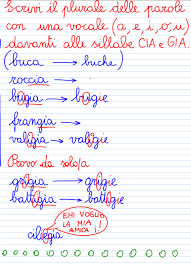 Scrivi il plurale delle parole
con una vocale (a, e, i, o, u)
davanti alle sillabe CIA e GIA.
(buca → buche)
roccia →
bugia → bugie
frangia →
valigia → valigie
Provo da solo/a
grigia → grigie
battigia → battigie
EHI VOGLIO
LA MIA
AMICA i!
ciliegia